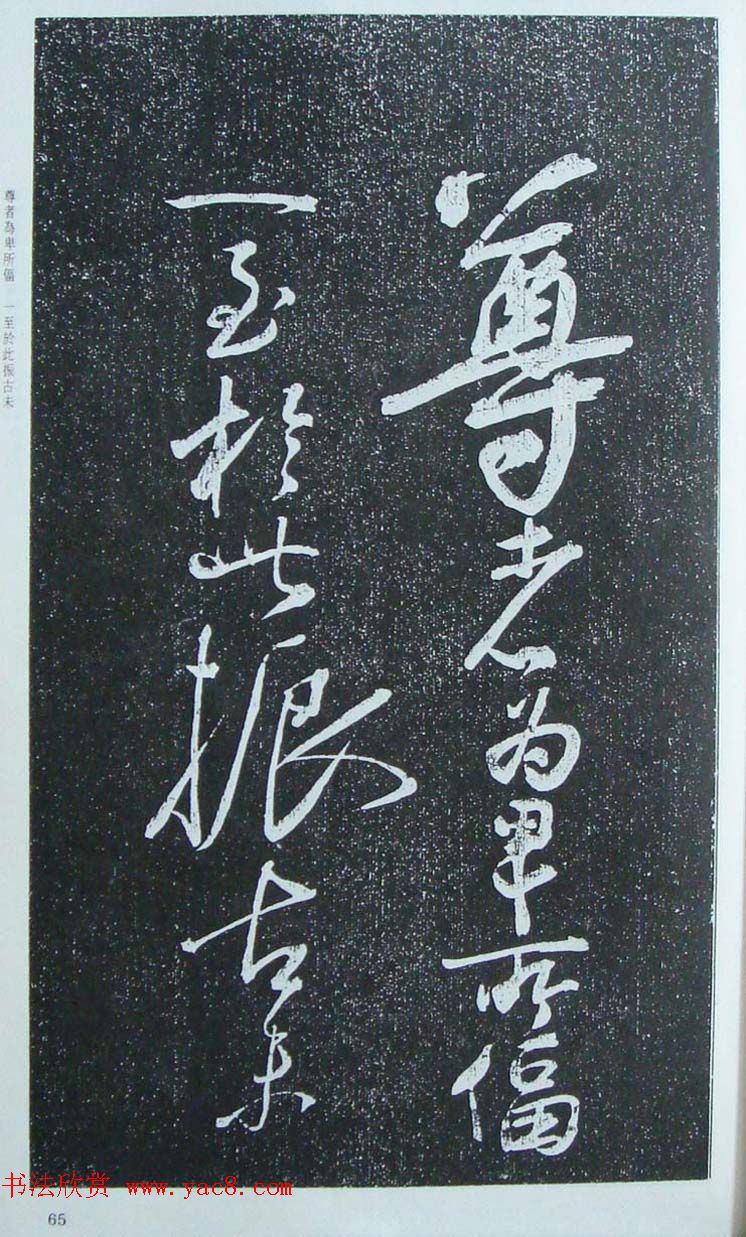 尊者為卑所偪
一至於此振古未
尊者為卑所偪 一至於此振古未
书法欣赏 www.yac8.com
65